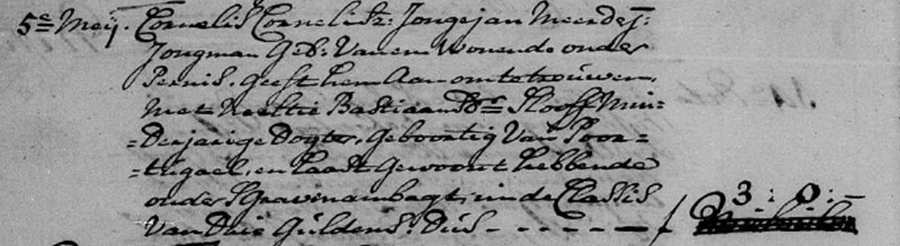 5e Meij. Cornelis Cornelisz: Jongejan Meerdej:
Jongman Geb: Van en Wonende onder
Pernis, geeft hem Aan om te trouwen,
met Neeltie Bastiaans Dr Slooff Min=
=Derjarige Dogter, Geboortig Van Poor=
=tugael, en Laast Gewoont hebbende
onder S Gravenambagt, in de Classis
Van Drie Guldens. Dus - - - - - - 3 : 0 : -